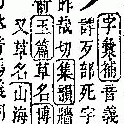 字彙補音義
詳歹部死字
昨哉切集韻牆
玉篇草名博
又草名山海